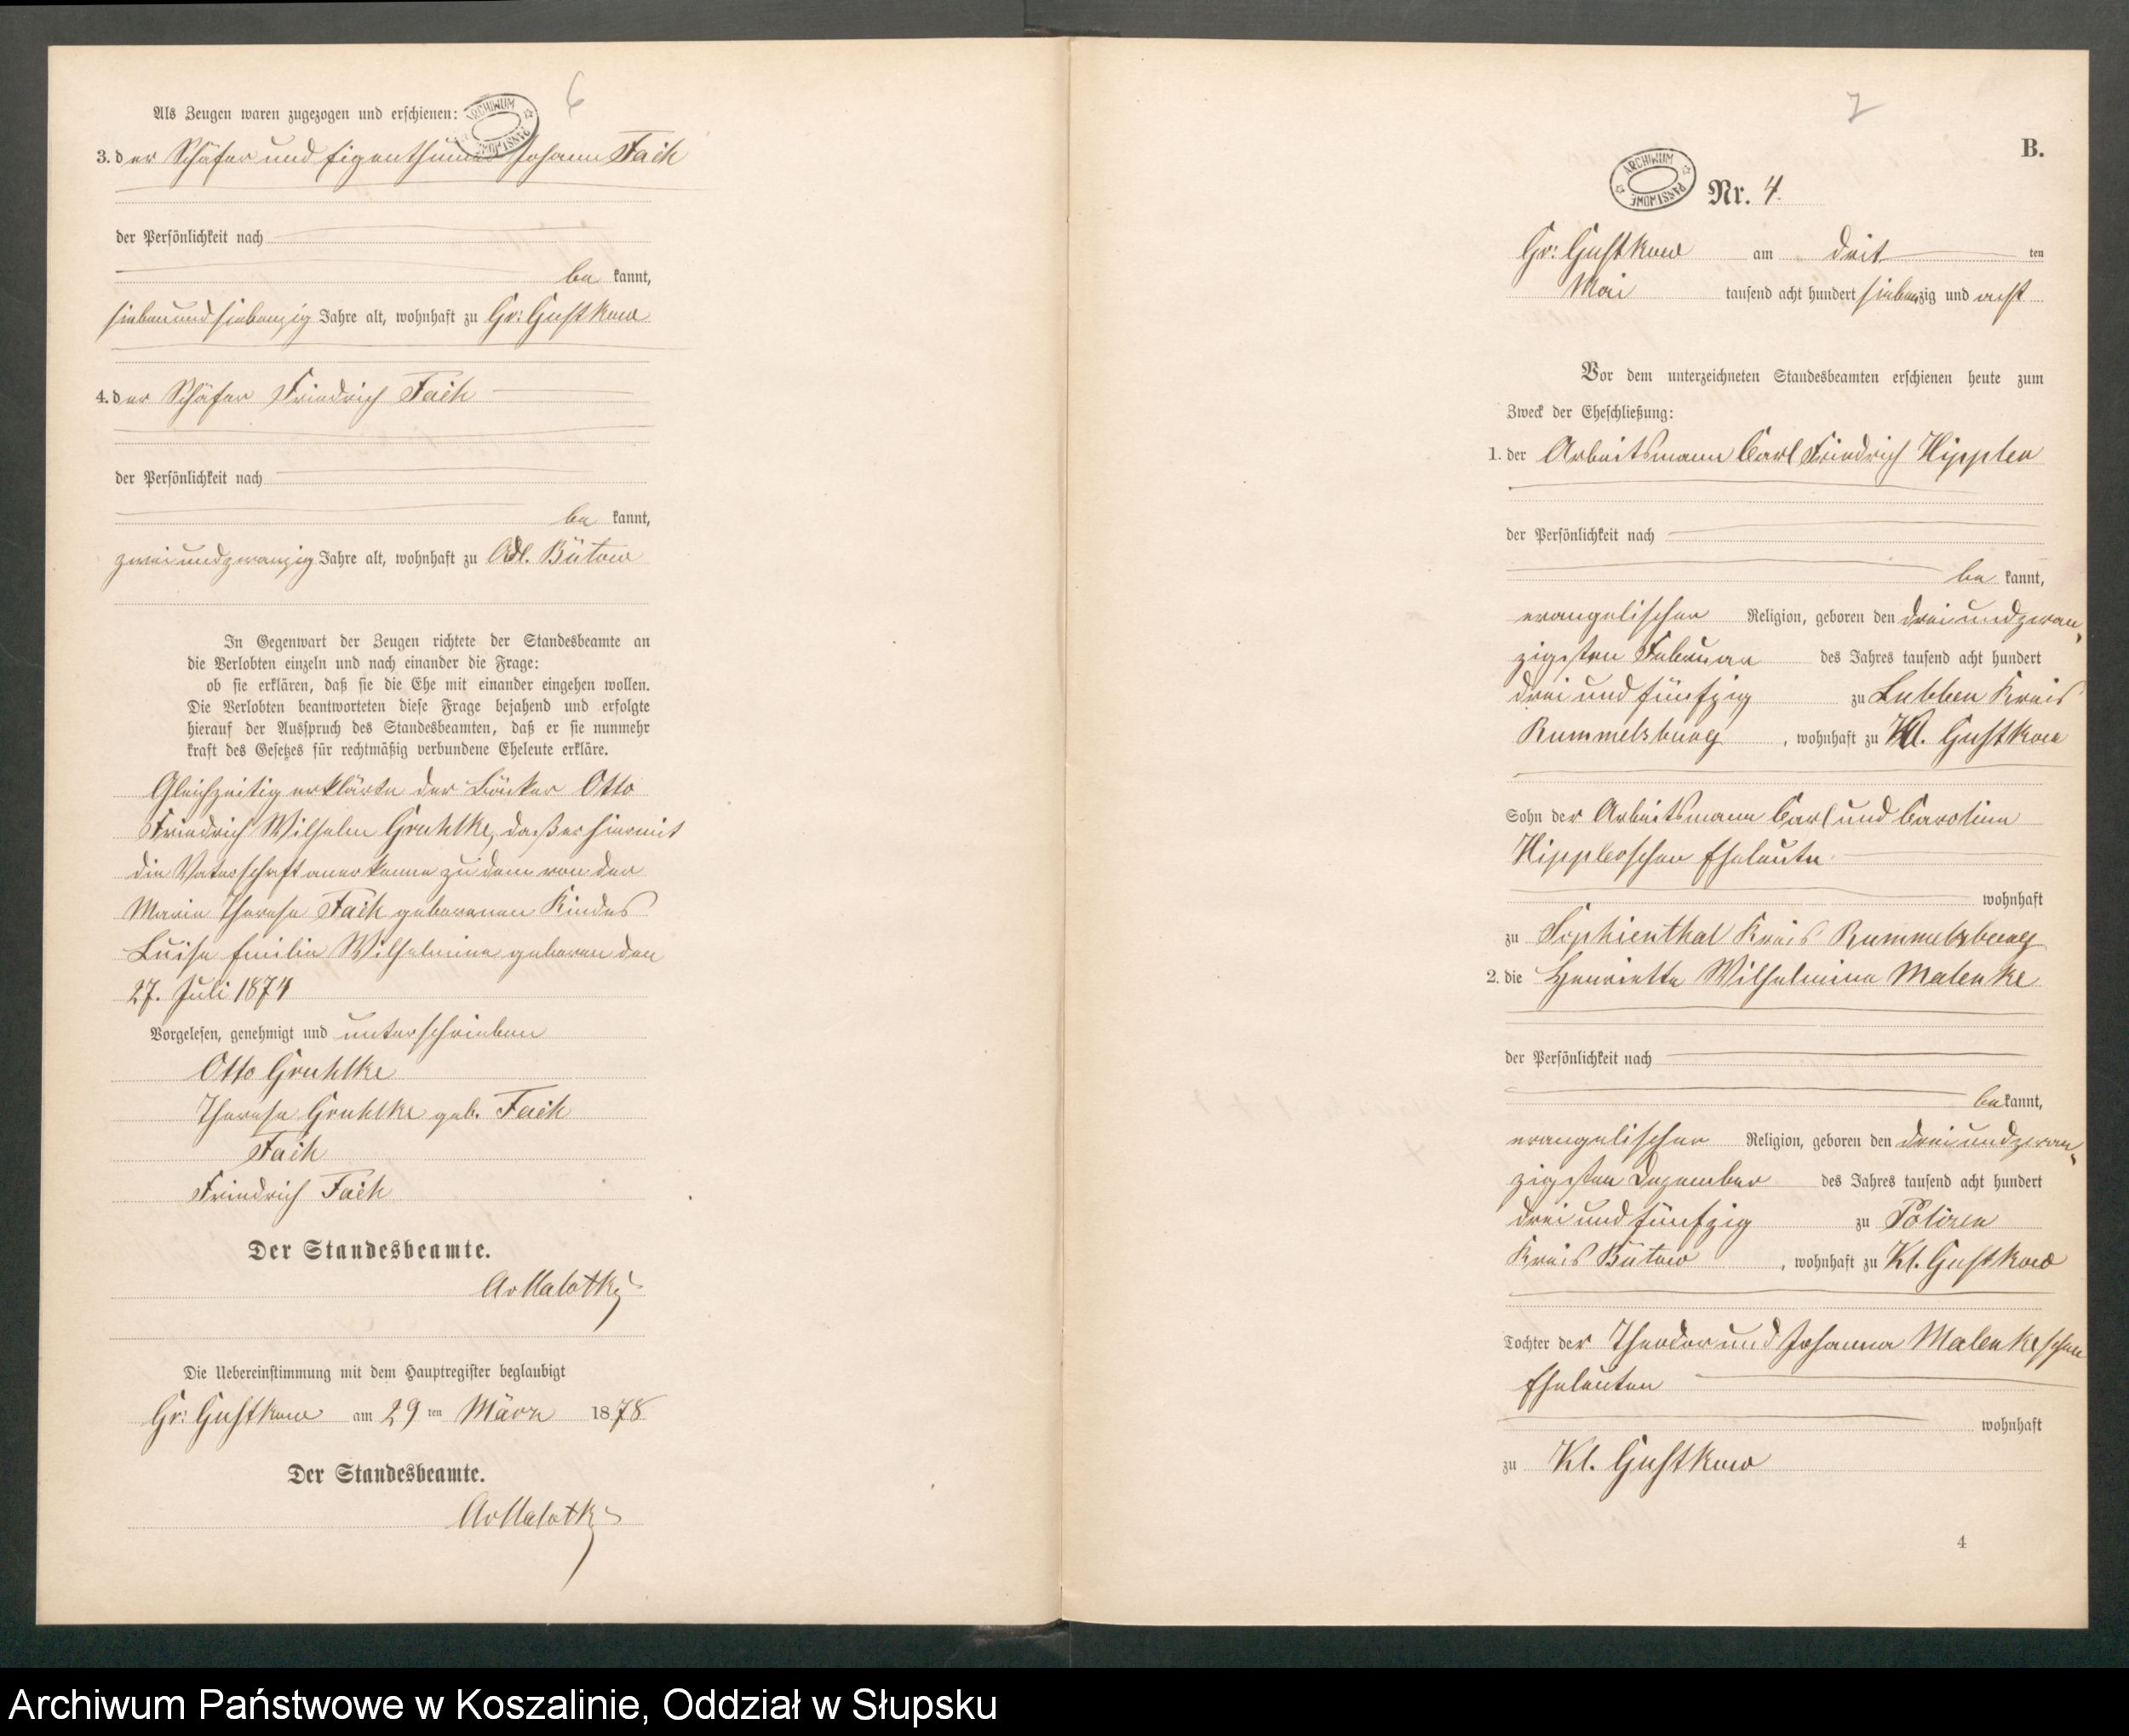 6
Als Zeugen waren zugezogen und erschienen:
ARCHIWUM PAŃSTWOWE
3. der Schäfer und Eigenthümer Johann Faik
der Persönlichkeit nach
be kannt,
siebenundsiebenzig Jahre alt, wohnhaft zu Gr: Gustkow
4. der Schäfer Friedrich Faik
der Persönlichkeit nach
be kannt,
zweiundzwanzig Jahre alt, wohnhaft zu Adl. Bütow
In Gegenwart der Zeugen richtete der Standesbeamte an
die Verlobten einzeln und nach einander die Frage:
ob sie erklären, daß sie die Ehe mit einander eingehen wollen.
Die Verlobten beantworteten diese Frage bejahend und erfolgte
hierauf der Ausspruch des Standesbeamten, daß er sie nunmehr
kraft des Gesetzes für rechtmäßig verbundene Eheleute erkläre.
Gleichzeitig erklärte der Otto
Friedrich Wilhelm Gruhlke, daß er hiermit
die Vaterschaft anerkenne zu dem von der
Marie Therese Faik geborenen Kindes
Luise Emilie Wilhelmine geboren den
27. Juli 1874
Vorgelesen, genehmigt und unterschrieben
Otto Gruhlke
Therese Gruhlke geb. Faik
Faik
Friedrich Faik
Der Standesbeamte.
AvMalotky
Die Uebereinstimmung mit dem Hauptregister beglaubigt
Gr: Gustkow am 29 ten März 1878
Der Standesbeamte.
AvMalotky
7
B.
ARCHIWUM PAŃSTWOWE
Nr. 4.
Gr: Gustkow am drit ten
Mai tausend acht hundert siebenzig und acht
Vor dem unterzeichneten Standesbeamten erschienen heute zum
Zweck der Eheschließung:
1. der Arbeitsmann Carl Friedrich Hippler
der Persönlichkeit nach
be kannt,
evangelischer Religion, geboren den dreiundzwan
zigsten Februar des Jahres tausend acht hundert
drei und fünfzig zu Lubben Kreis
Rummelsburg, wohnhaft zu Kl. Gustkow
Sohn der Arbeitsmann Carl und Caroline
Hipplerschen Eheleute
wohnhaft
zu Sophienthal Kreis Rummelsburg
2. die Henriette Wilhelmine Malenke
der Persönlichkeit nach
be kannt,
evangelischer Religion, geboren den dreiundzwan
zigsten Dezember des Jahres tausend acht hundert
drei und fünfzig zu
Kreis Bütow, wohnhaft zu Kl. Gustkow
Tochter der Theodor und Johanna Malenkeschen
Eheleuten
wohnhaft
zu Kl. Gustkow
4
Archiwum Państwowe w Koszalinie, Oddział w Słupsku